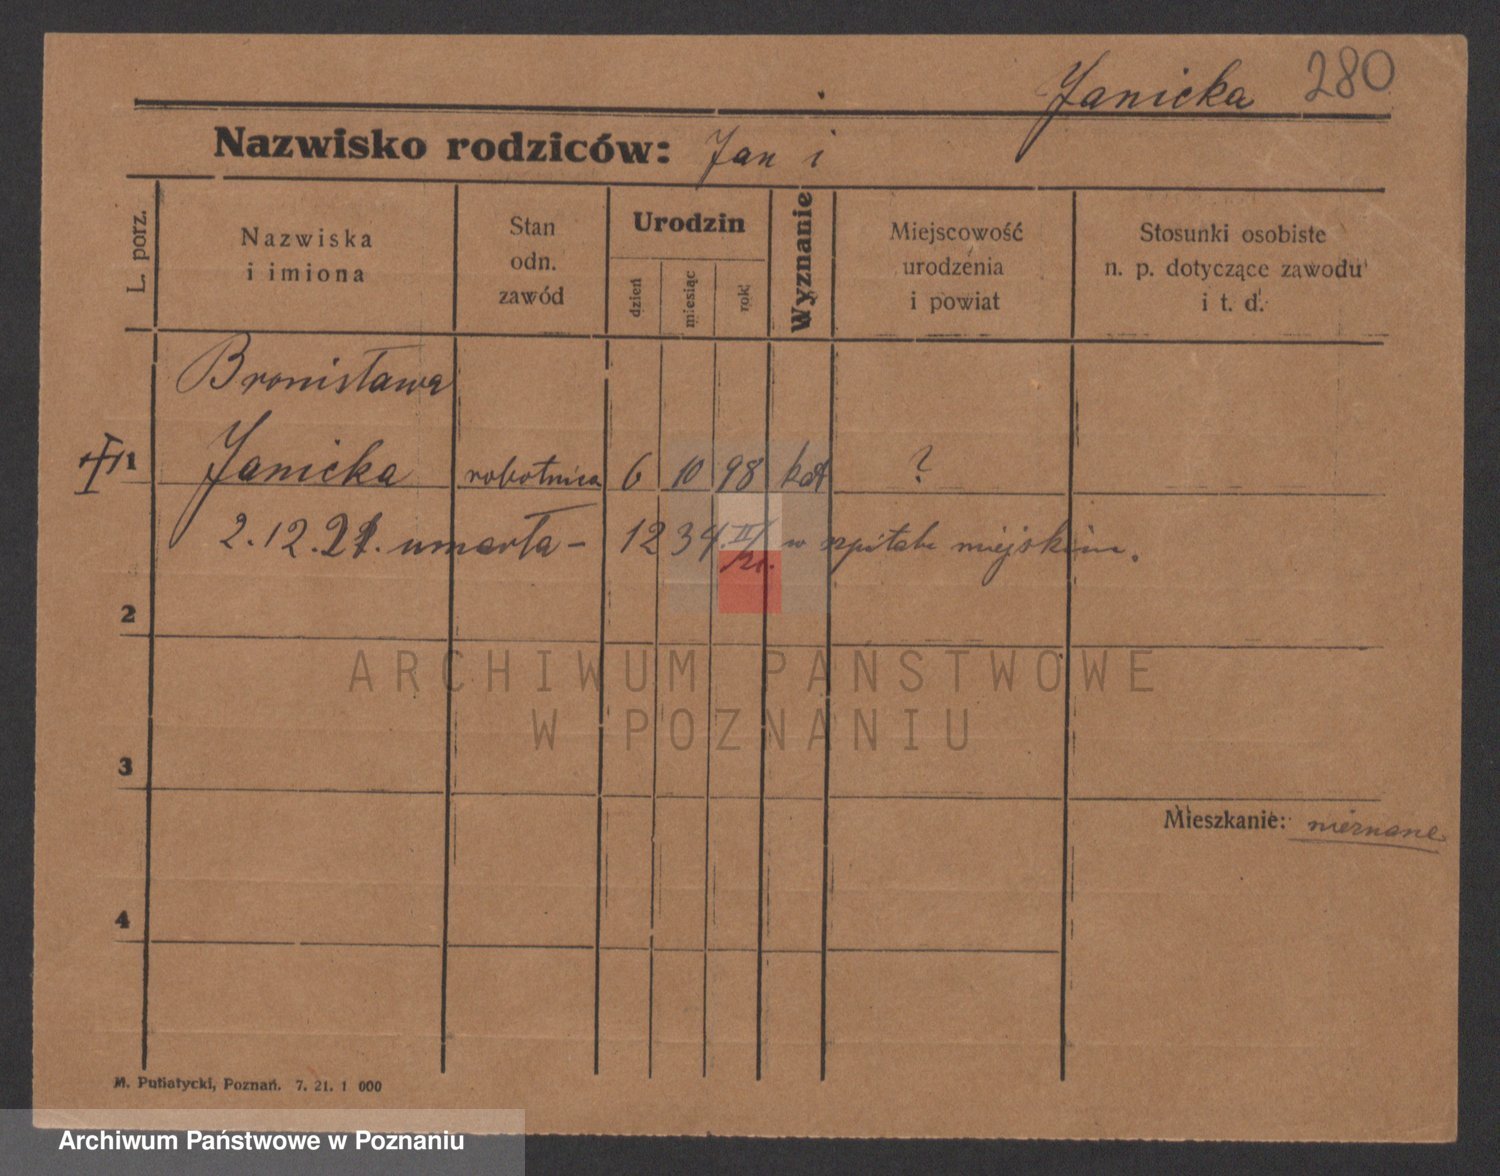 Janicka 280
Nazwisko rodziców: Jan i
L. porz.
Nazwiska
i imiona
Stan
odn.
zawód
Urodzin
dzień
miesiąc
rok
Wyznanie
Miejscowość
urodzenia
i powiat
Stosunki osobiste
n. p. dotyczące zawodu
i t. d.
Bronisława
1 Janicka robotnica 6 10 98 kat ?
2.12.21. umarła – 1234.II/21. w szpitalu miejskim.
2
ARCHIWUM PAŃSTWOWE
W POZNANIU
3
Mieszkanie: nieznane
4
M. Putiatycki, Poznań. 7. 21. 1 000
Archiwum Państwowe w Poznaniu